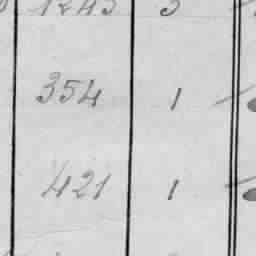 1243 3
354 1
421 1